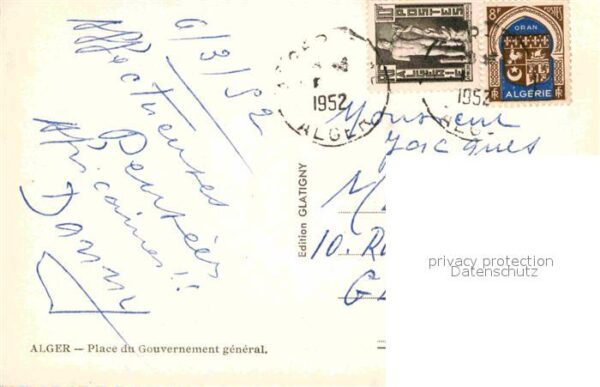 6/3/52
Affectueuses
Pensées
Africaines!!
Danny
POSTES
ALGERIE
8F POSTES
ORAN
ALGÉRIE
ALGER
1952
ALGER
1952
Monsieur
Jacques
M
10. R
G
Edition GLATIGNY
privacy protection
Datenschutz
ALGER — Place du Gouvernement général.